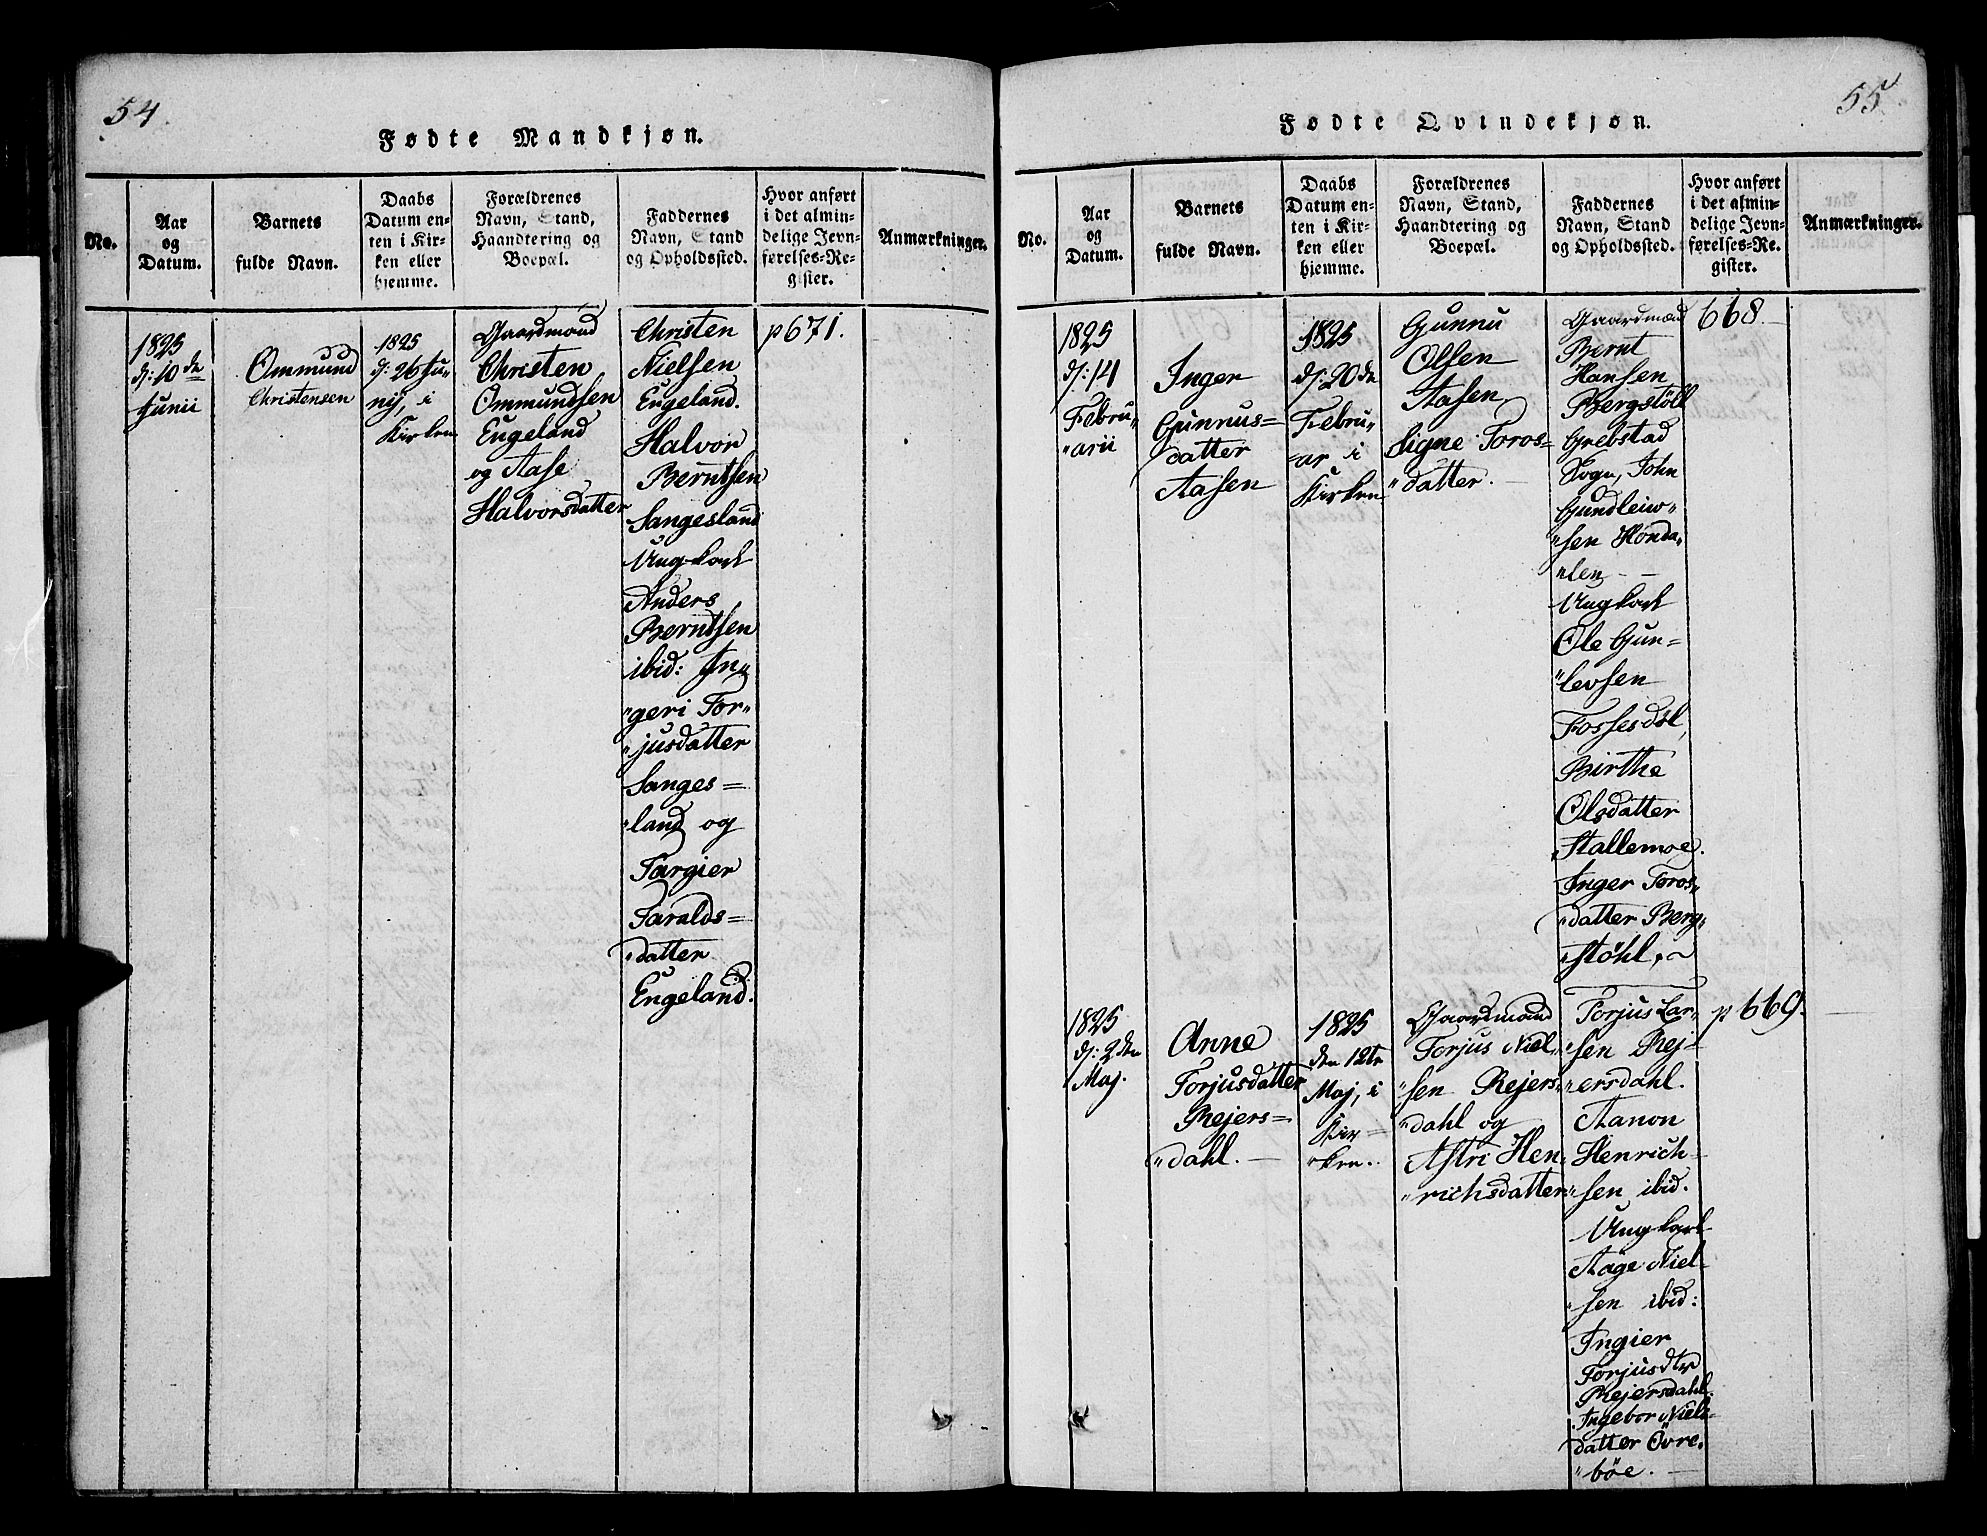 54.
Fødte Mandkjøn.
No.
Aar
og
Datum.
Barnets
fulde Navn.
Daabs
Datum en-
ten i Kir-
ken eller
hjemme.
Forældrenes
Navn, Stand,
Haandtering og
Boepæl.
Faddernes
Navn, Stand
og Opholdssted.
Hvor anført
i det almin-
delige Jevn-
førelses-Re-
gister.
Anmærkninger.
1825
d: 10 de
Junii
Ommund
Christensen
1825
d: 26 Ju-
nij, i
Kirken
Gaardmand
Christen
Ommundsen
Eugeland
og Aase
Halvorsdatter
Christen
Nielsen
Eugeland.
Halvor
Berntsen
Sangesland
Ungkarl
Anders
Berntsen
ibid: In„
„geri Tor„
„jusdatter
Sanges=
„land og
Targier
Taralds=
„datter
Engeland.
p 671.
55
Fødte Qvindekjøn.
No.
Aar
og
Datum.
Barnets
fulde Navn.
Daabs
Datum en-
ten i Kir-
ken eller
hjemme.
Forældrenes
Navn, Stand,
Haandtering og
Boepæl.
Faddernes
Navn, Stand
og Opholdssted.
Hvor anført
i det almin-
delige Jevn-
førelses-Re-
gister.
Anmærkninger.
1825
d: 14
Febru„
„arii
Inger
Gunnus=
datter
Aasen
1825
d: 20 de
Febru„
=ar i
Kirken
Gunnu
Olsen
Aasen,
Signe Toros=
„datter. —
Gaardmænd
Bernt
Hansen
Bergstöll
Grebstad
Sogn, John
Gundleiw„
„sen Honda„
„len — —
Ungkarl
Ole Gun=
„levsen
Fossesdal,
Birthe
Olsdatter
Stallemoe.
Inger Toros„
„datter Berg„
„stöhl, ~
668
1825
d: 2 den
Maj.
Anne
Torjusdatter
Rejers=
„dahl. —
1825
den 12te
Maj, i
Kir=
„ken.
Gaardmand
Torjus Niel„
„sen Rejers„
„dahl og
Astri Hen„
„richsdatter
Torjus Lar„
„sen Rej=
„ersdahl.
Aanon
Henrich=
„sen ibid.
Ungkarl
Aage Niel„
„sen ibid:
Ingier
Torjusdtr
Rejersdahl.
Ingebor Niels=
datter Övre„
„böe. —
p 669.